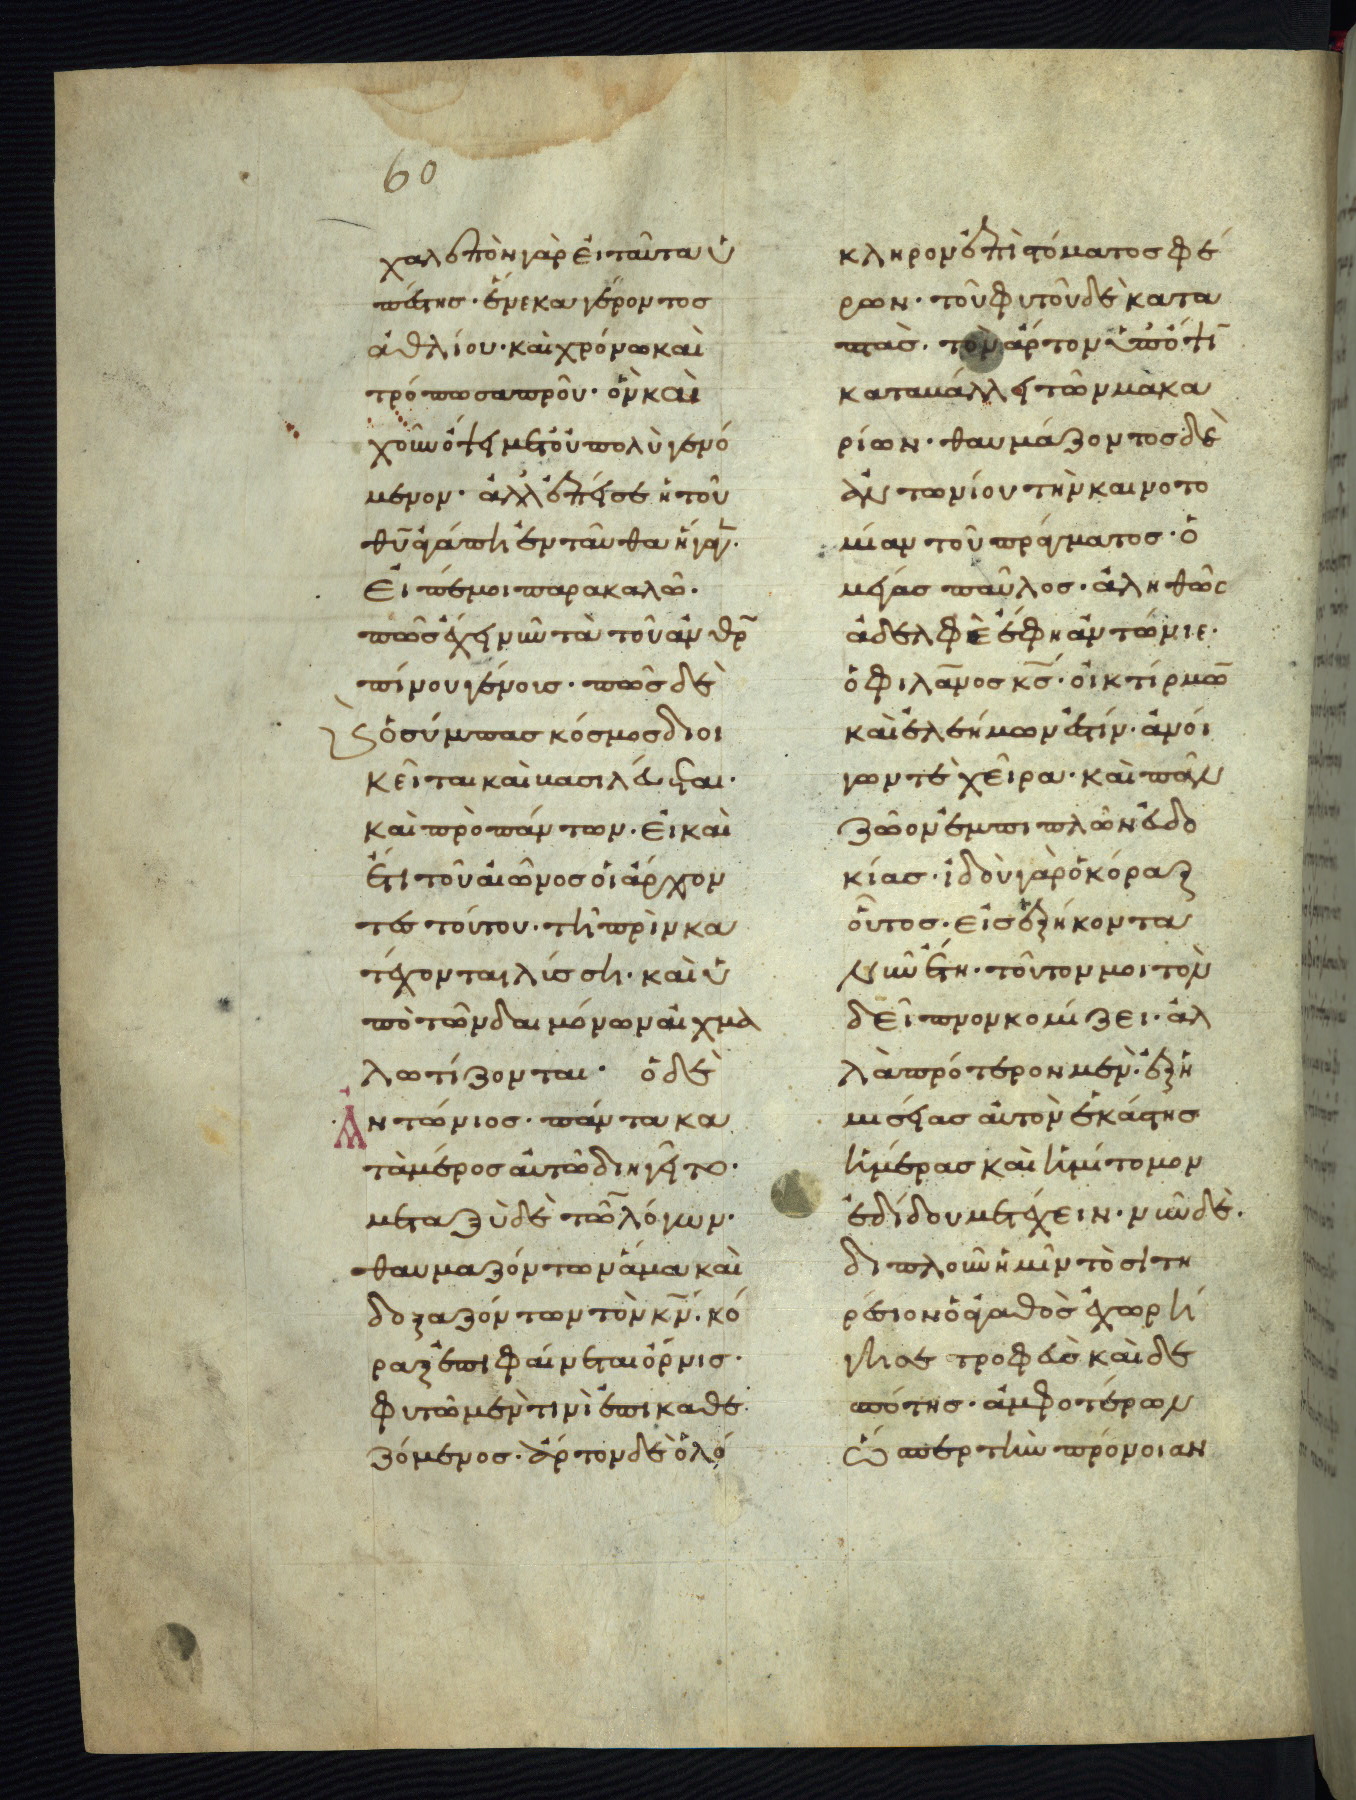 60
χαλεπὸν γὰρ εἰ ταῦτα ὑ
πέστης· ἕνεκα γέροντος
ἀθλίου· καὶ χρόνω καὶ
τρόπω σαπροῦ· ὃν καὶ
χοῦν ὄψει μετ' οὐ πολὺ γενό
μενον· ἀλλ' ἐπείσέ ἡ τοῦ
θυ ἀγάπη ἐνταῦθα ἡγαγ·
Εἰπέ μοι παρακαλῶ·
πῶς ἔχει νῦν τὰ τοῦ ἀνθρω
πίνου γένους· πῶς δὲ
ὁ σύμπας κόσμος διοι
κεῖται καὶ βασιλεύεται·
καὶ πρὸ πάντων· εἰ καὶ
ἔτι τοῦ αἰῶνος οἱ ἄρχον
τες τούτου· τῆ πρὶν κα
τέχονται λύσση· καὶ ὑ
πὸ τῶν δαιμόνων αἰχμα
λωτίζονται· ὁ δὲ
Ἀντώνιος· πάντα κα
τὰ μέρος αὐτῶ διηγεῖτο·
μεταξὺ δὲ τῶν λόγων·
θαυμαζόντων ἅμα καὶ
δοξαζόντων τὸν κν· κό
ραξ ἐπιφαίνεται ὄρνις·
φυτῶ μέν τινι ἐπικαθε
ζόμενος· ἄρτον δὲ ὁλό
κληρον ἐπὶ στόματος φέ
ρων· τοῦ φυτοῦ δὲ κατα
πτὰς· τὸν ἄρτον ὑπ' ὄψι
καταβάλλει τῶν μακα
ρίων· θαυμάζοντος δὲ
ἀντωνίου τὴν καινοτο
μίαν τοῦ πράγματος· ὁ
μέγας παῦλος· ἀληθῶς
ἀδελφὲ ἔφη ἀντώνιε·
ὁ φιλανος κς· οἰκτίρμων
καὶ ἐλεήμων ἐστίν· ἀνοί
γων τὲ χεῖρα· καὶ πᾶν
ζῶον ἐμπιπλῶν εὐδο
κίας· ἰδοὺ γὰρ ὁ κόραξ
οὗτος· εἰς ἑξήκοντα
νῦν ἔτη· τοῦτον μοι τὸν
δεῖπνον κομίζει· ἀλ
λὰ πρότερον μὲν· ἐξ ἡ
μισείας αὐτὸν ἑκάστης
ἡμέρας καὶ ἡμίτομον
ἐδίδου μετέχειν· νῦν δὲ·
διπλοῦν ἡμῖν τὸ σιτη
ρέσιον ὁ ἀγαθὸς ἐχωρή
γησε τροφεὺς καὶ δε
σπότης· ἀμφοτέρων
ὥσπερ τὴν πρόνοιαν